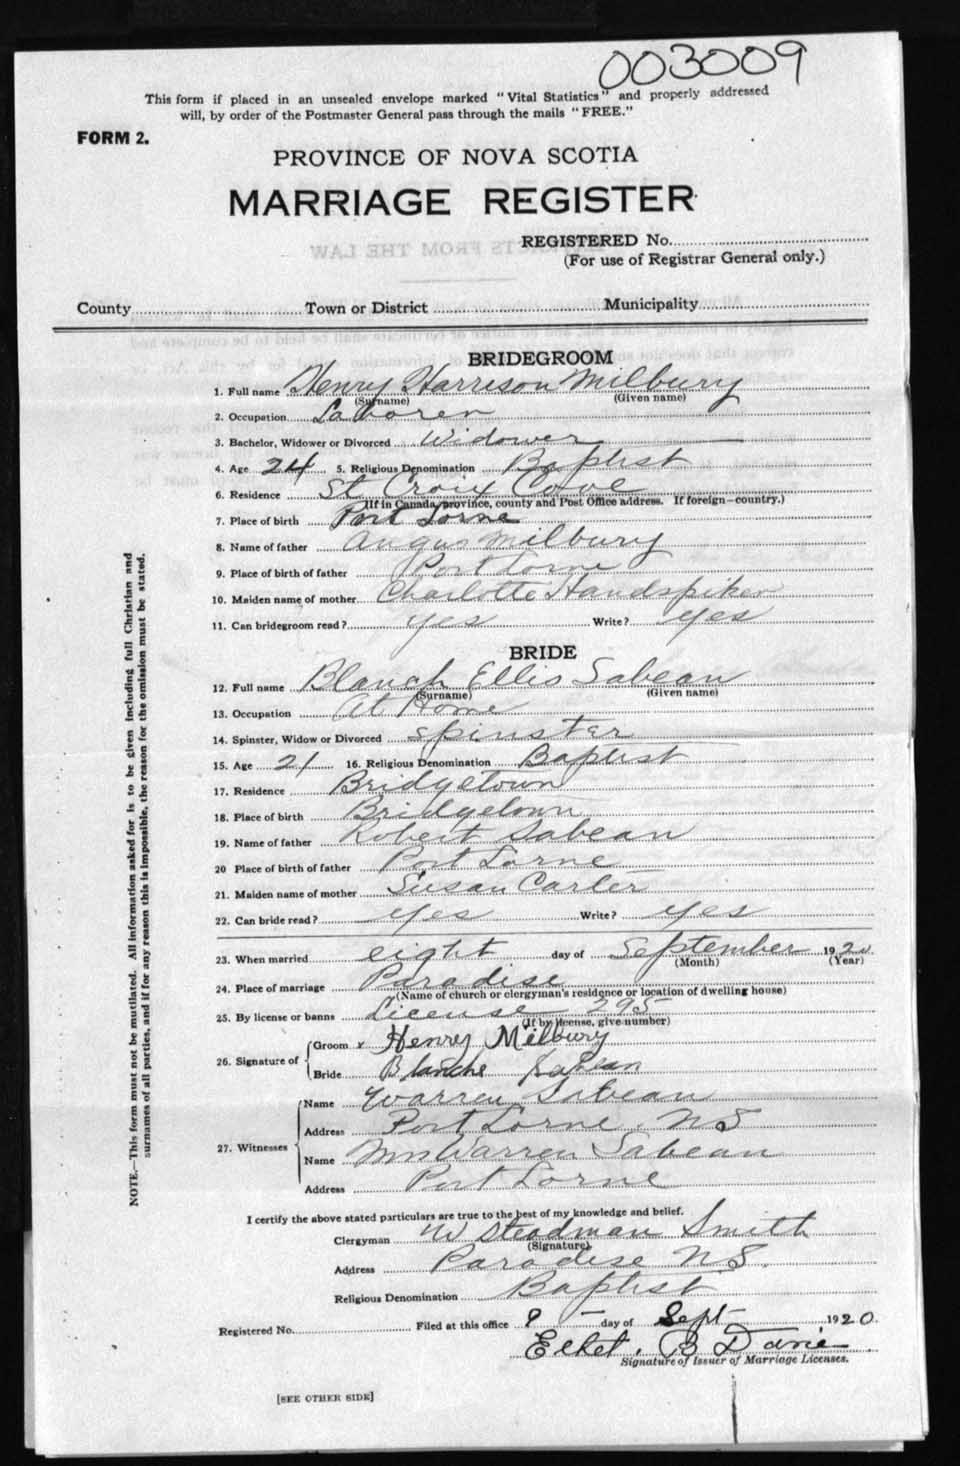 003009
This form if placed in an unsealed envelope marked "Vital Statistics" and properly addressed
will, by order of the Postmaster General pass through the mails "FREE."
FORM 2.
PROVINCE OF NOVA SCOTIA
MARRIAGE REGISTER
REGISTERED No.
(For use of Registrar General only.)
County Town or District Municipality
BRIDEGROOM
1. Full name Henry Harrison Milbury
(Surname) (Given name)
2. Occupation Laborer
3. Bachelor, Widower or Divorced Widower
4. Age 24 5. Religious Denomination Baptist
6. Residence St Croix Cove
(If in Canada, province, county and Post Office address. If foreign—country.)
7. Place of birth Port Lorne
8. Name of father Angus Milbury
9. Place of birth of father Port Lorne
10. Maiden name of mother Charlotte Handspiker
11. Can bridegroom read? yes Write? yes
BRIDE
12. Full name Blanch Ellis Sabean
(Surname) (Given name)
13. Occupation At Home
14. Spinster, Widow or Divorced spinster
15. Age 21 16. Religious Denomination Baptist
17. Residence Bridgetown
18. Place of birth Bridgetown
19. Name of father Robert Sabean
20 Place of birth of father Port Lorne
21. Maiden name of mother Susan Carter
22. Can bride read? yes Write? yes
23. When married eight day of September 1920
(Month) (Year)
24. Place of marriage Paradise
(Name of church or clergyman's residence or location of dwelling house)
25. By license or banns License 295
(If by license, give number)
26. Signature of Groom x Henry Milbury
Bride Blanche Sabean
27. Witnesses Name Warren Sabean
Address Port Lorne, NS
Name Mrs Warren Sabean
Address Port Lorne
I certify the above stated particulars are true to the best of my knowledge and belief.
Clergyman Steadman Smith
(Signature)
Address Paradise N.S.
Religious Denomination Baptist
Registered No. Filed at this office 9 — day of Sept 1920.
B
Signature of Issuer of Marriage Licenses.
[SEE OTHER SIDE]
NOTE.—This form must not be mutilated. All information asked for is to be given including full Christian and
surnames of all parties, and if for any reason this is impossible, the reason for the omission must be stated.